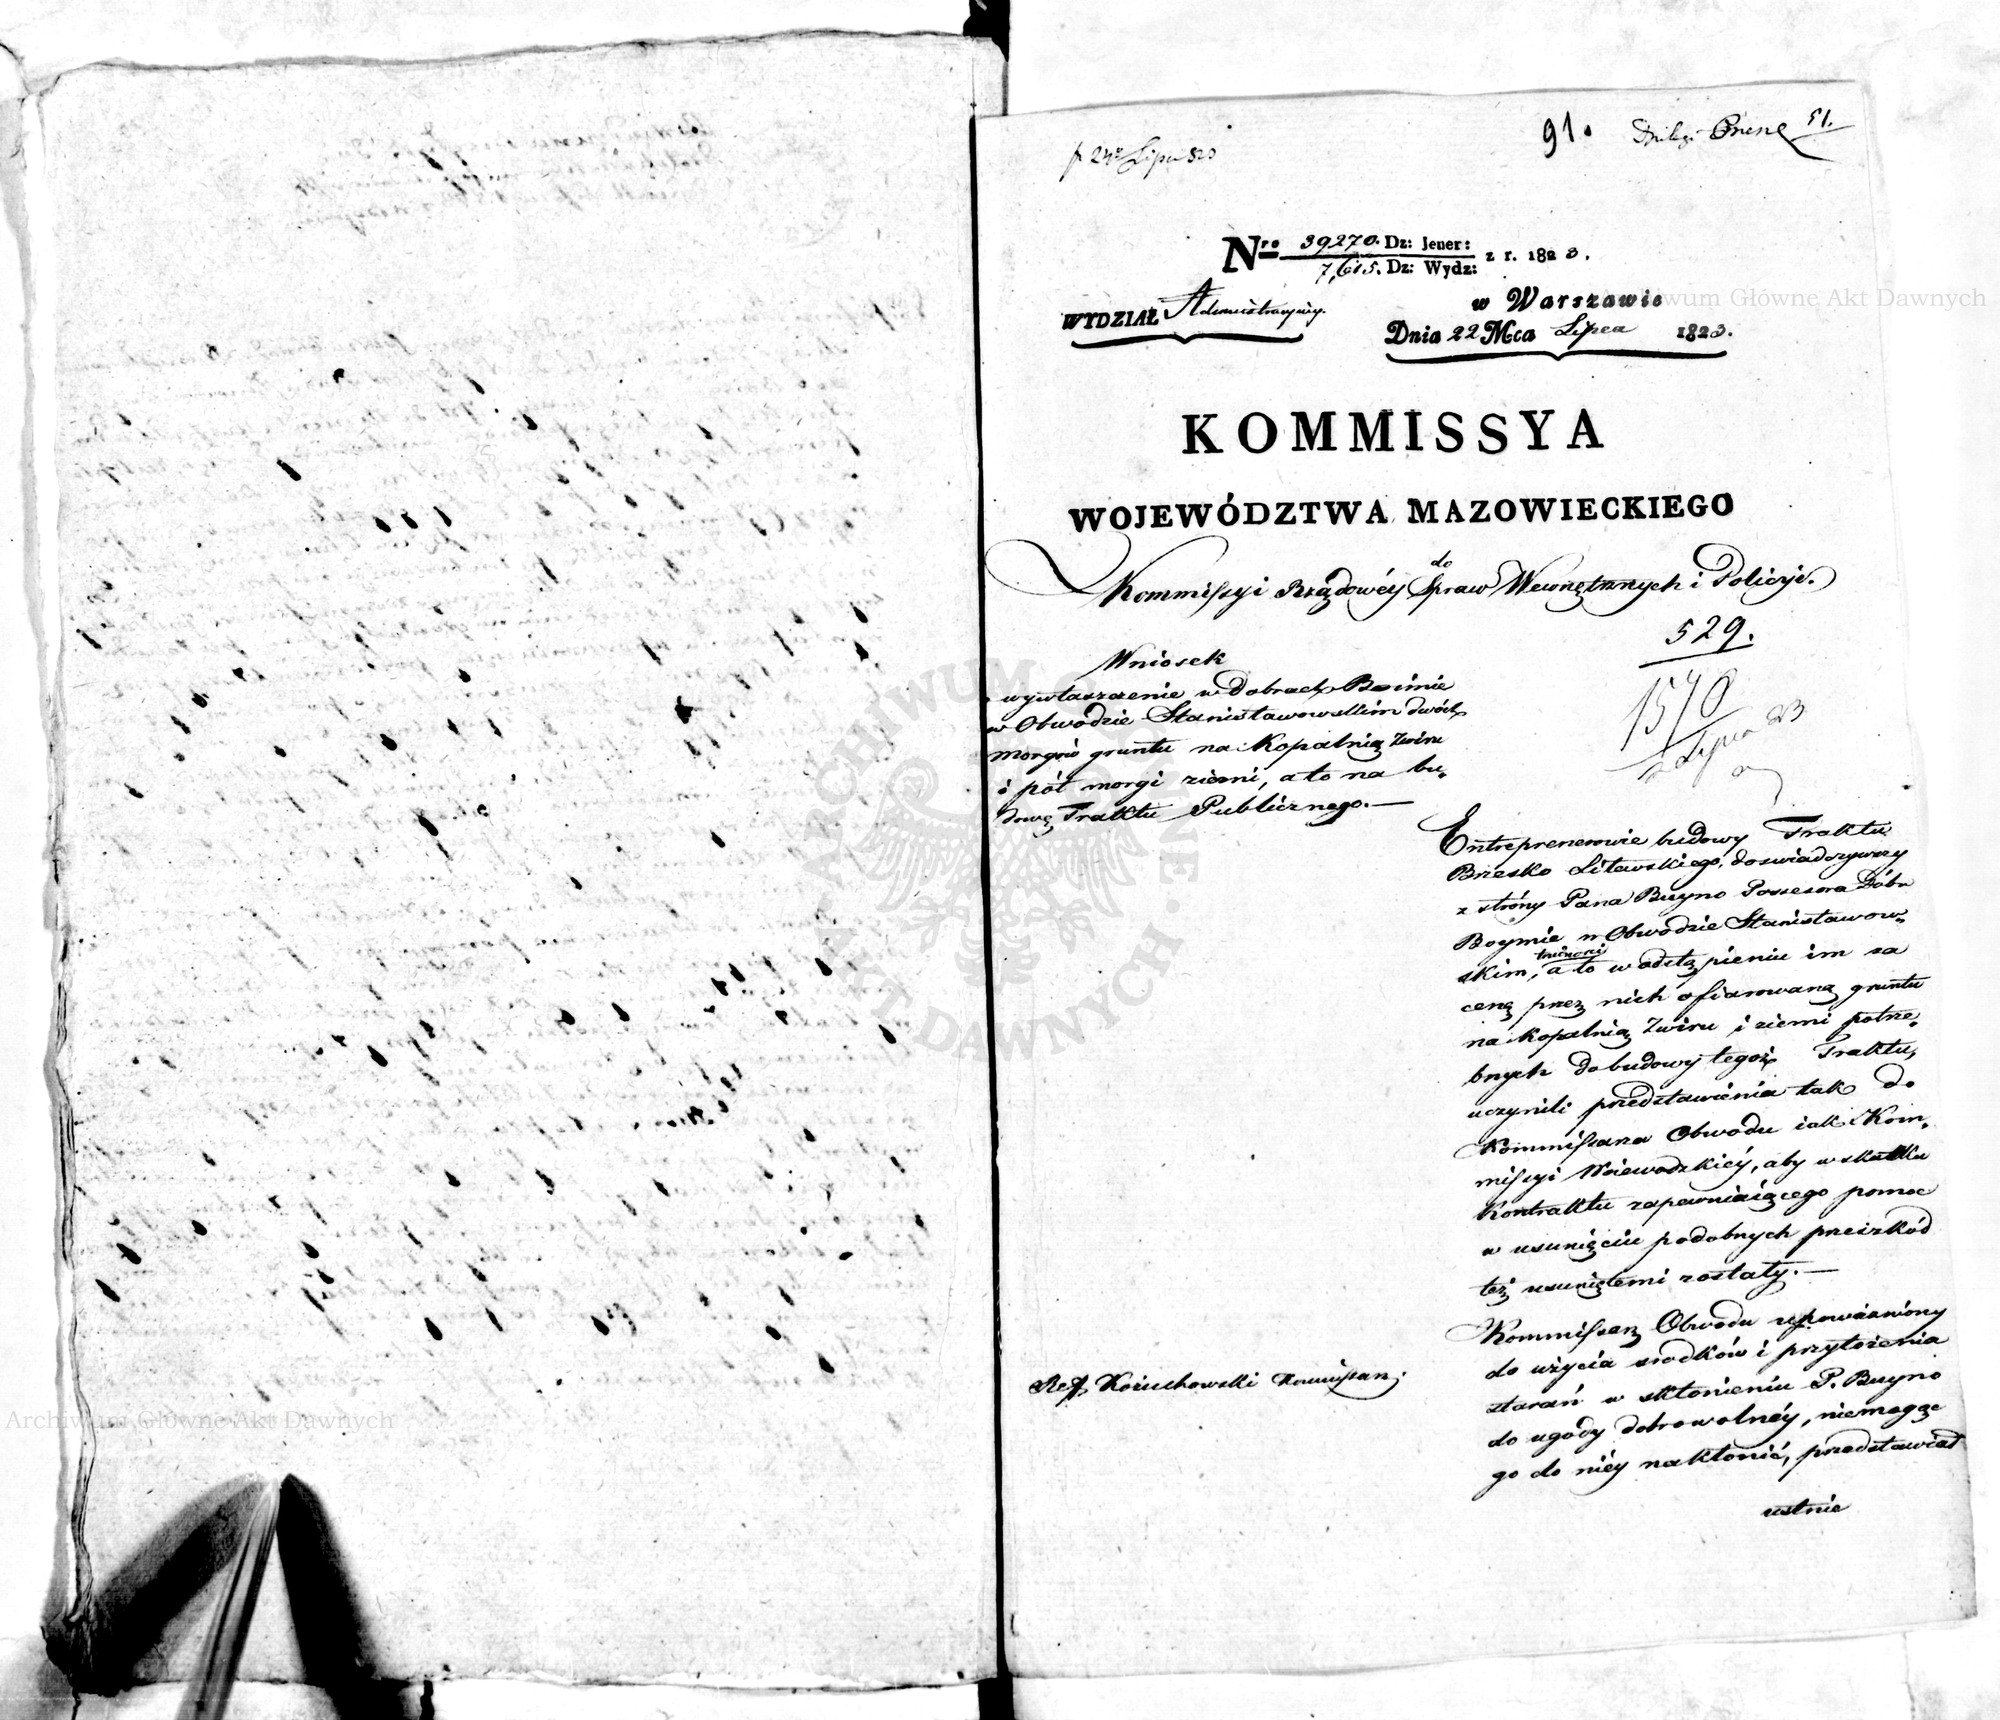 91. 51.
Nro 39270. Dz: Jener:
7,615. Dz: Wydz: z r. 1823.
WYDZIAŁ Administracyiny.
w Warszawie
Dnia 22 Mca Lipca 1823.
KOMMISSYA
WOJEWÓDZTWA MAZOWIECKIEGO
do
Kommissyi Rządowéy Spraw Wewnętrznych i Policyi.
529.
1570
23
Lipca
Wniosek
wywłaszczenie w Dobrach Boimie
w Obwodzie Stanisławowskim dwóch
morgów gruntu na Kopalnią Żwiru
i pół morgi ziemi, a to na bu-
dowę Traktu Publicznego.—
Entreprenerowie budowy Traktu
Brzesko Litewskiego, doswiadczywszy
z strony Pana Buyno Possesora Dóbr
Boymie w Obwodzie Stanisławow-
trudności
skim, a to w odstąpieniu im za
cenę przez nich ofiarowaną gruntu
na Kopalnią Żwiru i ziemi potrze-
bnych do budowy tegoż Traktu,
uczynili przedstawienia tak do
Kommissarza Obwodu iak Kom-
missyi Woiewodzkiéy, aby w skutku
Kontraktu zapewniaiącego pomoc
w usunięciu podobnych przeszkód
też usuniętemi zostały.—
Kommissarz Obwodu upoważniony
do użycia srodków i przyłożenia
starań w skłonieniu P. Buyno
do ugody dobrowolnéy, niemogąc
go do niéy nakłonić, przedstawiał
ustnie
Ref. Kożuchowski Kommissarz.
Archiwum Główne Akt Dawnych
Archiwum Główne Akt Dawnych
ARCHIWUM GŁÓWNE AKT DAWNYCH